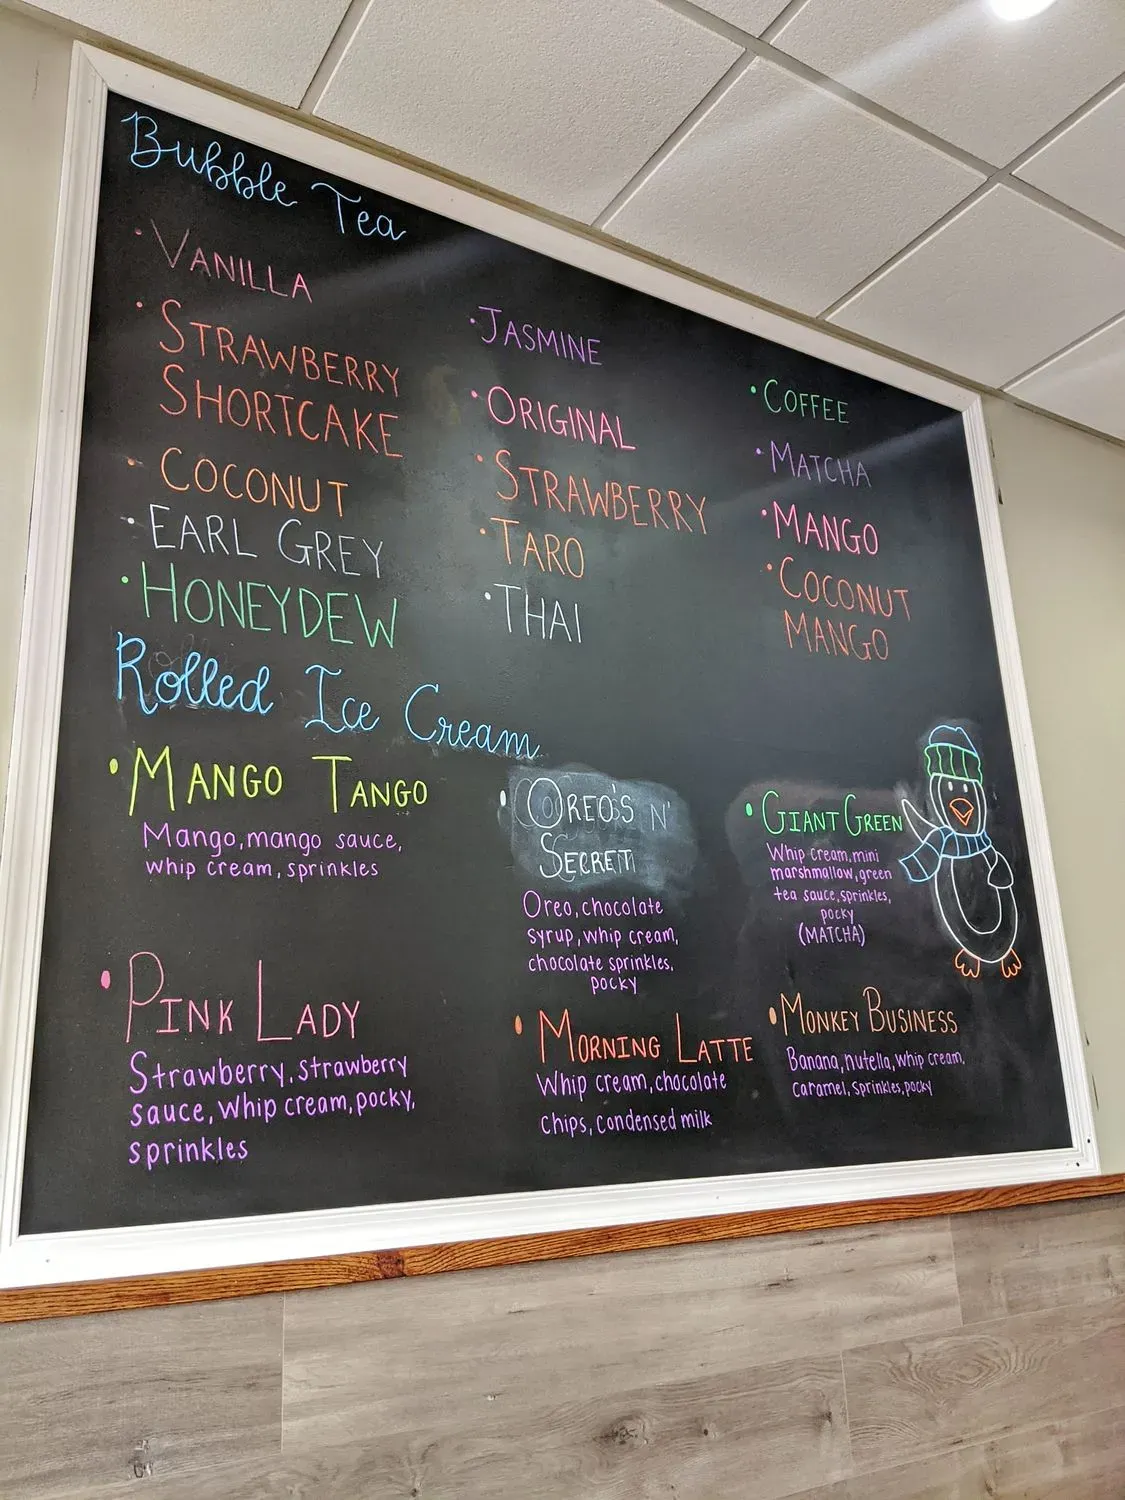 Bubble Tea
• VANILLA
• STRAWBERRY
SHORTCAKE
• COCONUT
• EARL GREY
• HONEYDEW
• JASMINE
• ORIGINAL
• STRAWBERRY
• TARO
• THAI
• COFFEE
• MATCHA
• MANGO
• COCONUT
MANGO
Rolled Ice Cream
• MANGO TANGO
Mango, mango sauce,
whip cream, sprinkles
• PINK LADY
Strawberry, strawberry
sauce, whip cream, pocky,
sprinkles
• OREO'S N'
SECRET
Oreo, chocolate
syrup, whip cream,
chocolate sprinkles,
pocky
• MORNING LATTE
Whip cream, chocolate
chips, condensed milk
• GIANT GREEN
Whip cream, mini
marshmallow, green
tea sauce, sprinkles,
pocky
(MATCHA)
• MONKEY BUSINESS
Banana, nutella, whip cream,
caramel, sprinkles, pocky